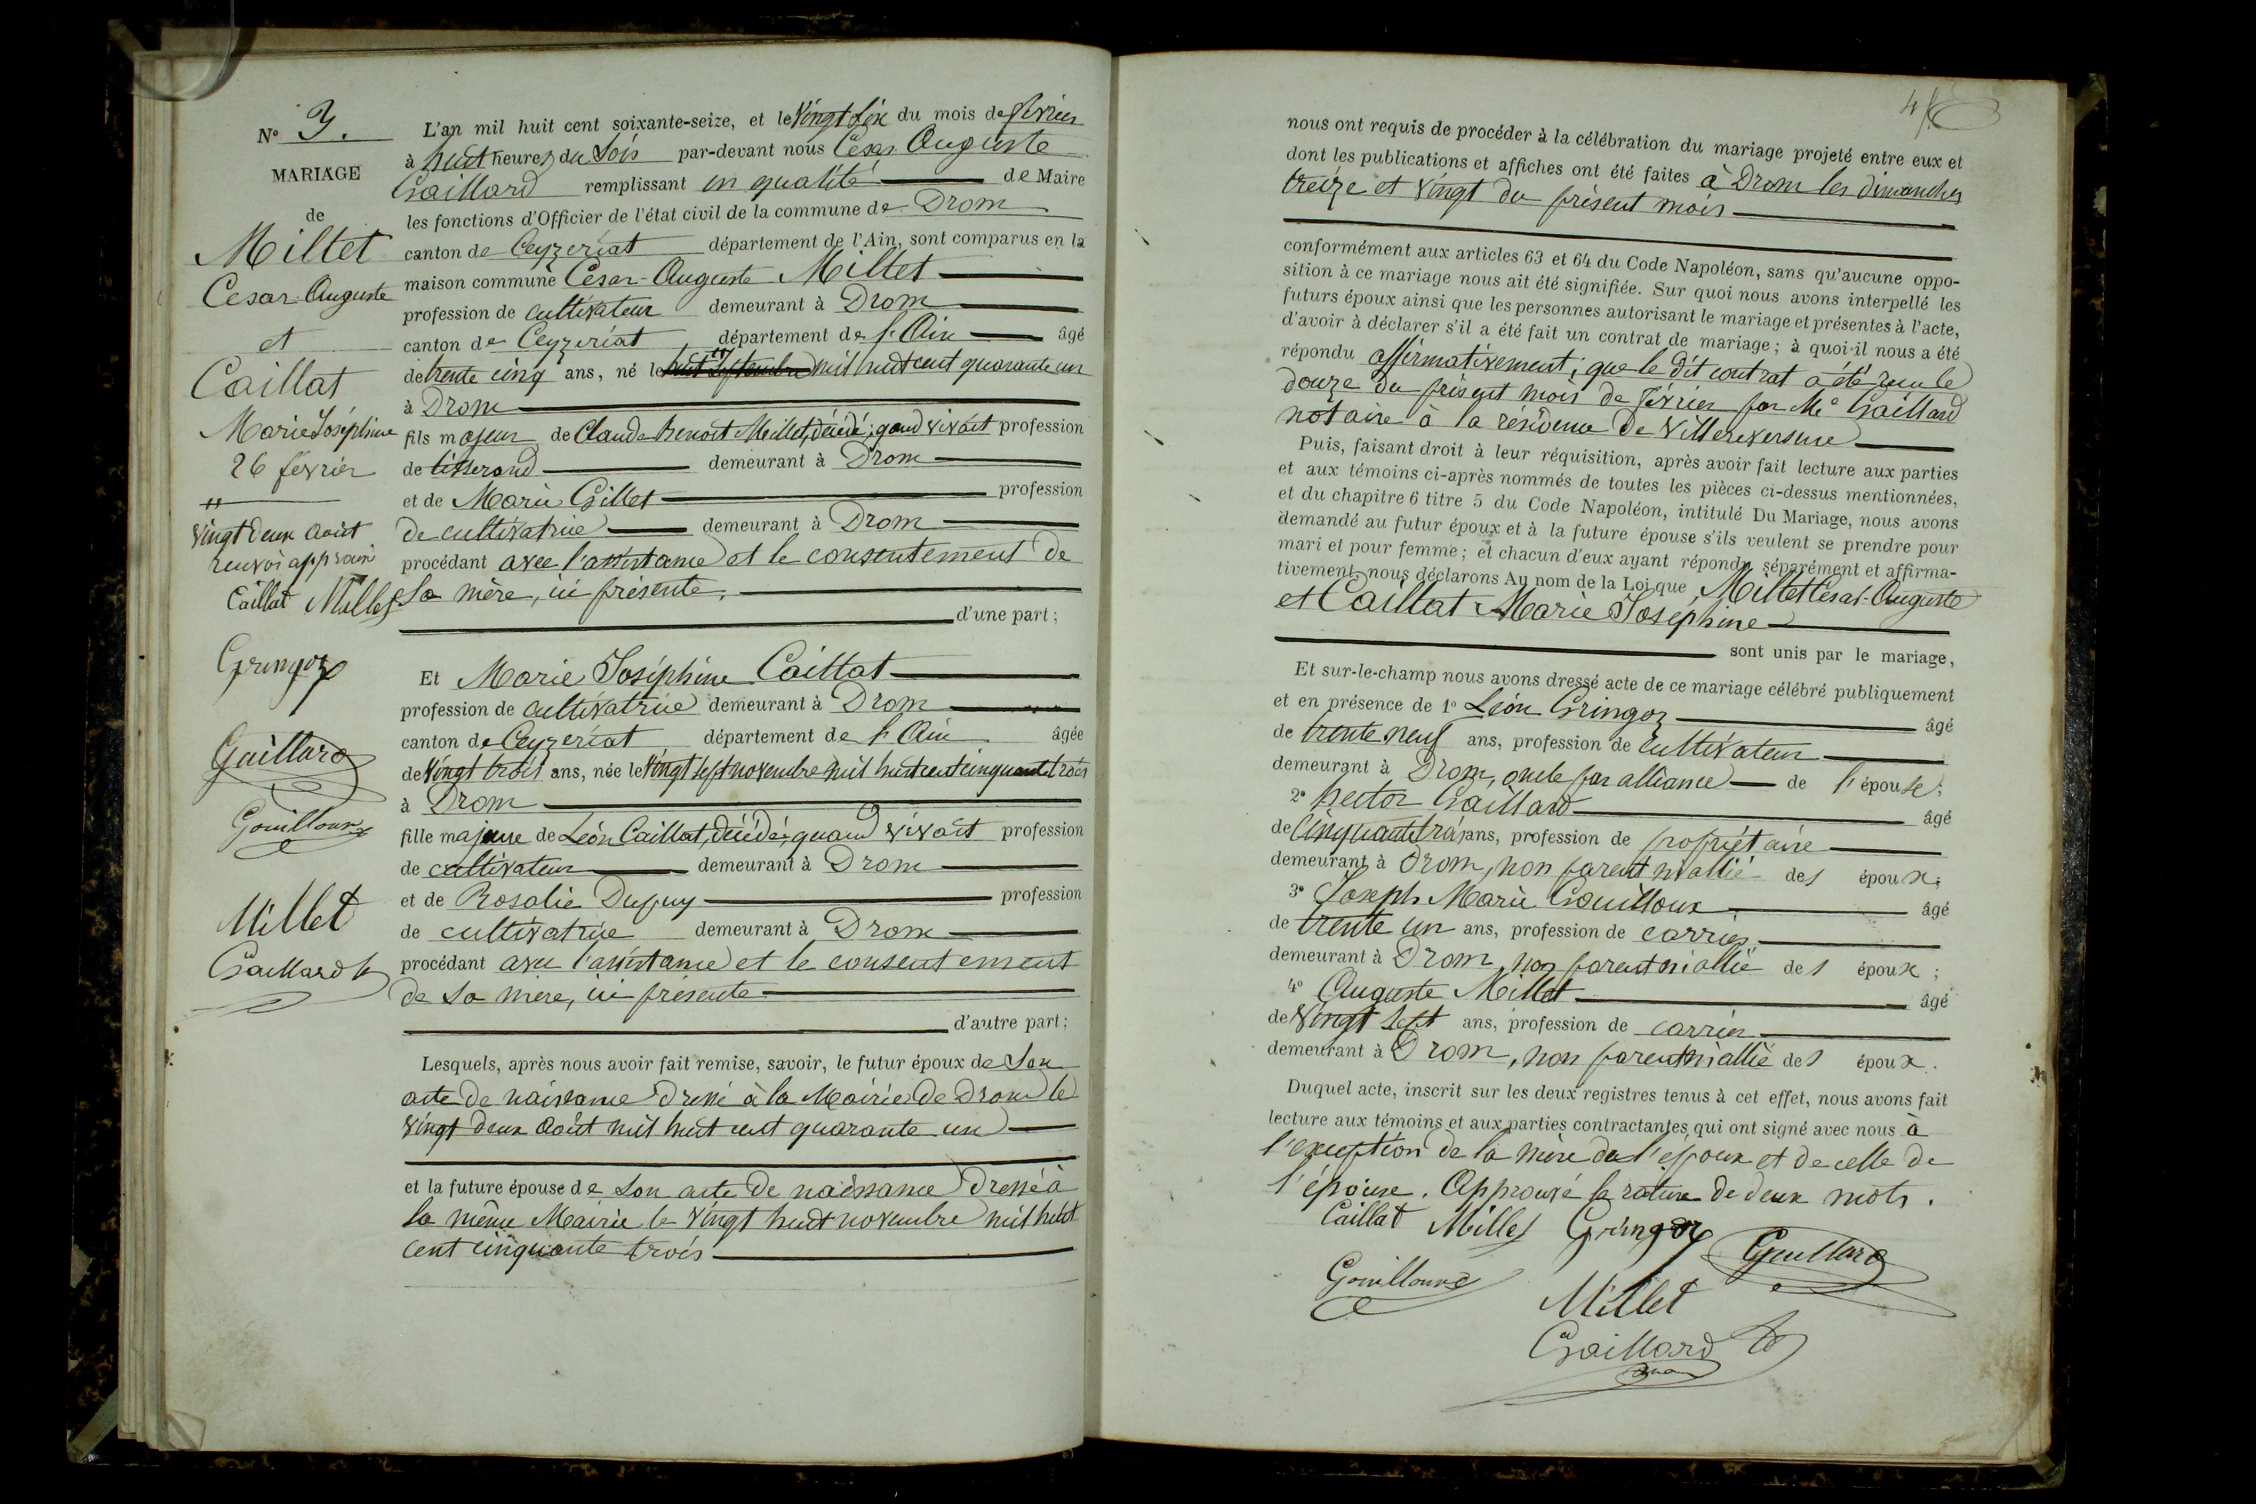 N° 3.
MARIAGE
de
Millet
César Auguste
et
Caillat
Marie Joséphine
26 février
"
vingt deux août
renvoi approuvé
Caillat Millet
Gringoz
Gaillard
Gouilloux
Millet
Gaillard
L'an mil huit cent soixante-seize, et le vingt six du mois de février
à huit heures du soir par-devant nous César Auguste
Gaillard remplissant en qualité de Maire
les fonctions d'Officier de l'état civil de la commune de Drom
canton de Ceyzeriat département de l'Ain, sont comparus en la
maison commune César-Auguste Millet
profession de cultivateur demeurant à Drom
canton de Ceyzériat département de l'Ain âgé
de trente cinq ans, né le huit septembre " mil huit cent quarante un
à Drom
fils majeur de Claude Benoit Millet, décédé; quand vivait profession
de tisserand demeurant à Drom
et de Marie Gillet profession
de cultivatrice demeurant à Drom
procédant avec l'assistance et le consentement de
sa mère, ici présente.
d'une part;
Et Marie Joséphine Caillat
profession de cultivatrice demeurant à Drom
canton de Ceyzeriat département de l'Ain âgée
de vingt trois ans, née le vingt sept novembre mil huit cent cinquante trois
à Drom
fille majeure de Léon Caillat, décédé; quand vivait profession
de cultivateur demeurant à Drom
et de Rosalie Dupuy profession
de cultivatrice demeurant à Drom
procédant avec l'assistance et le consentement
de sa mère, ici présente
d'autre part;
Lesquels, après nous avoir fait remise, savoir, le futur époux de son
acte de naissance dressé à la Mairie de Drom le
vingt deux août mil huit cent quarante un
et la future épouse de son acte de naissance dressé à
la même Mairie le vingt huit novembre mil huit
cent cinquante trois
4
nous ont requis de procéder à la célébration du mariage projeté entre eux et
dont les publications et affiches ont été faites à Drom les dimanches
treize et vingt du présent mois
conformément aux articles 63 et 64 du Code Napoléon, sans qu'aucune oppo-
sition à ce mariage nous ait été signifiée. Sur quoi nous avons interpellé les
futurs époux ainsi que les personnes autorisant le mariage et présentes à l'acte,
d'avoir à déclarer s'il a été fait un contrat de mariage; à quoi il nous a été
répondu affirmativement; que le dit contrat a été reçu le
douze du présent mois de février par Me Gaillard
notaire à la résidence de Villereversure
Puis, faisant droit à leur réquisition, après avoir fait lecture aux parties
et aux témoins ci-après nommés de toutes les pièces ci-dessus mentionnées,
et du chapitre 6 titre 5 du Code Napoléon, intitulé Du Mariage, nous avons
demandé au futur époux et à la future épouse s'ils veulent se prendre pour
mari et pour femme; et chacun d'eux ayant répondu séparément et affirma-
tivement, nous déclarons Au nom de la Loi que Millet César-Auguste
et Caillat Marie Joséphine
sont unis par le mariage,
Et sur-le-champ nous avons dressé acte de ce mariage célébré publiquement
et en présence de 1° Léon Gringoz âgé
de trente neuf ans, profession de cultivateur
demeurant à Drom, oncle par alliance de l'épouse;
2° Hector Gaillard âgé
de cinquante trois ans, profession de propriétaire
demeurant à Drom, non parent ni allié des époux;
3° Joseph Marie Gouilloux âgé
de trente un ans, profession de carrier
demeurant à Drom, non parent ni allié des époux;
4° Auguste Millet âgé
de vingt sept ans, profession de carrier
demeurant à Drom, non parent ni allié des époux.
Duquel acte, inscrit sur les deux registres tenus à cet effet, nous avons fait
lecture aux témoins et aux parties contractantes qui ont signé avec nous à
l'exception de la mère de l'époux et de celle de
l'épouse. Approuvé la rature de deux mots.
Caillat Millet Gringoz Gaillard
Gouilloux
Millet
Gaillard